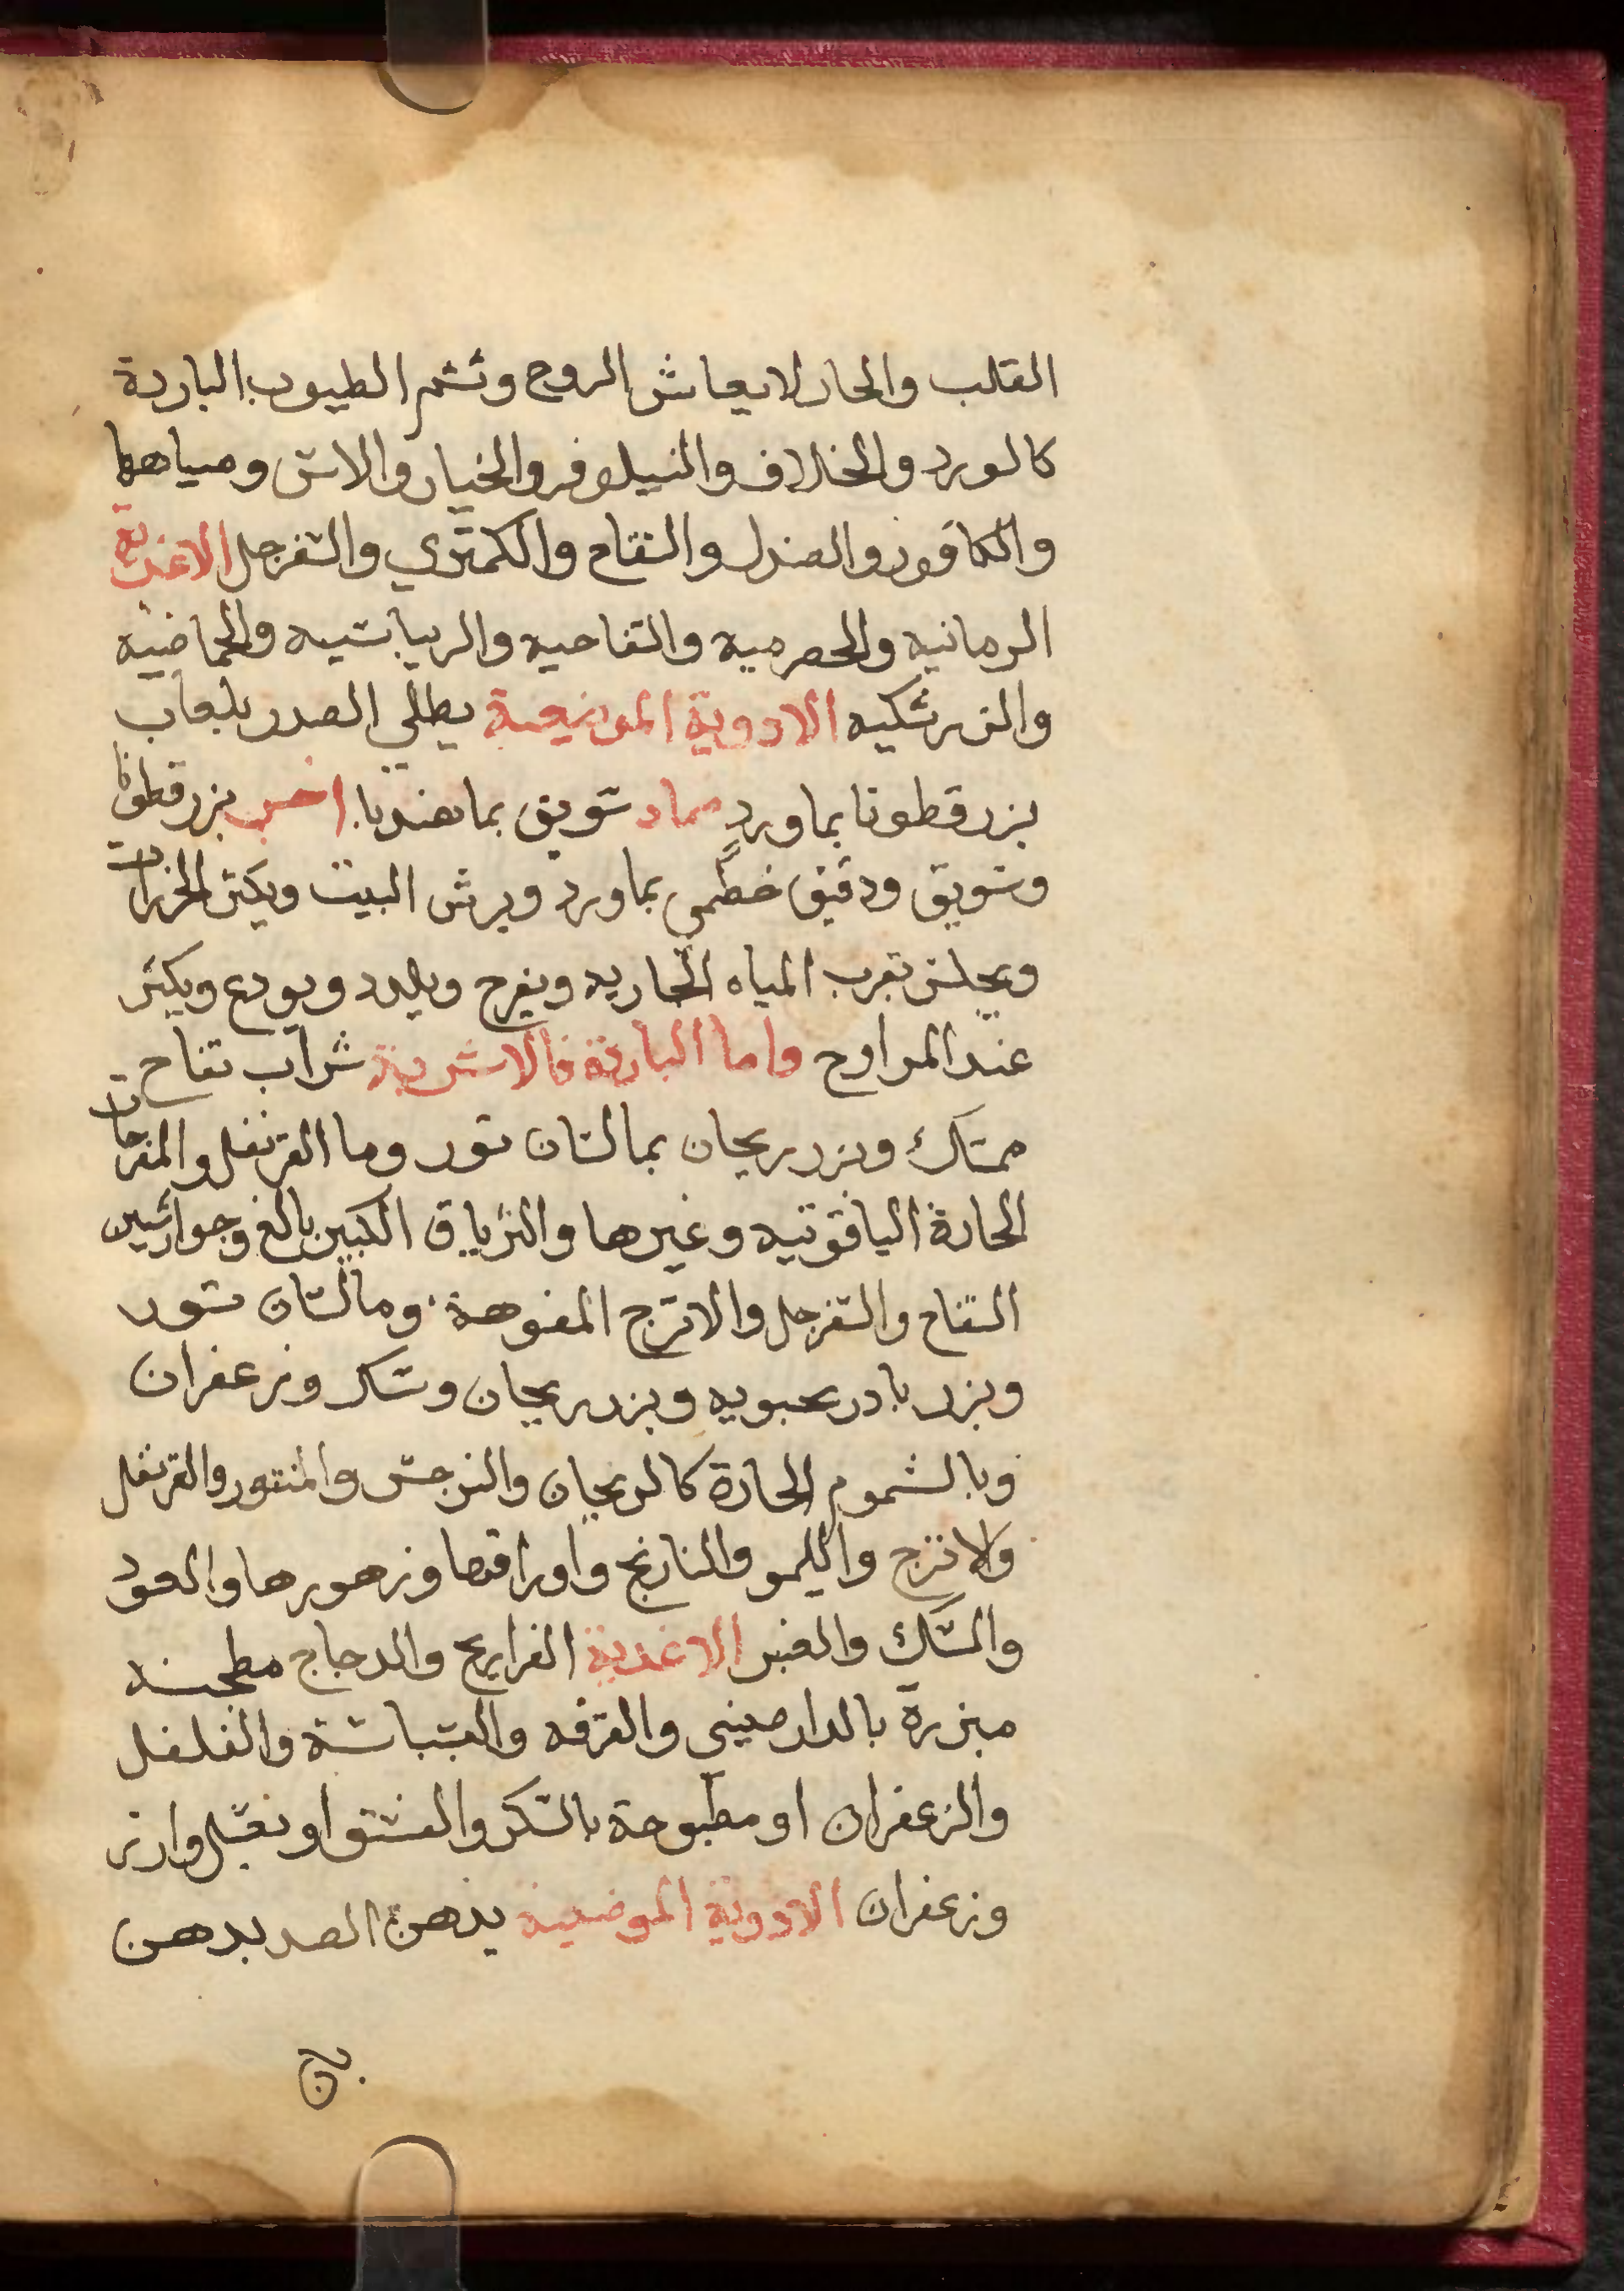 القلب والحار لانعاش الروح وتشم الطيوب الباردة
كالورد والخلاف والنيلوفر والخيار والاس ومياهها
والكافور والصندل والتفاح والكمثري والسفرجل الاغذية
الرمانيه والحصرميه والتفاحيه والريباسيه والحماضيه
والزرشكيه الادوية الموضعية يطلي الصدر بلعاب
بزرقطونا بماورد ضماد سويق بما هندبا اخر بزرقطونا
وسويق ودقيق خطمي بماورد ويرش البيت ويكثر الخرارات
ويجلس بقرب المياه الجاريه ويفرح ويلدد ويودع ويكثر
عند المراوح واما الباردة فالاشربة شراب تفاح
ممسك وبزر ريحان بما لسان ثور وما القرنفل والمفرحات
الحارة الياقوتيه وغيرها والترياق الكبير بالغ وجوارشين
التفاح والسفرجل والاترج المفوهة وما لسان ثور
وبزر بادرنجبويه وبزر ريحان وسكر وزعفران
وبالشموم الحارة كالريحان والنرجس والمنثور والقرنفل
ولاترج والليمو والنارنج واوراقها وزهورها والعود
والمسك والعنبر الاغدية الفراريج والدجاج مطجنه
مبزرة بالدارصيني والقرفه والبسباسة والفلفل
والزعفران او مطبوخة بالسكر والفستق او بعسل وارز
وزعفران الادوية الموضعية يدهن الصد بدهن